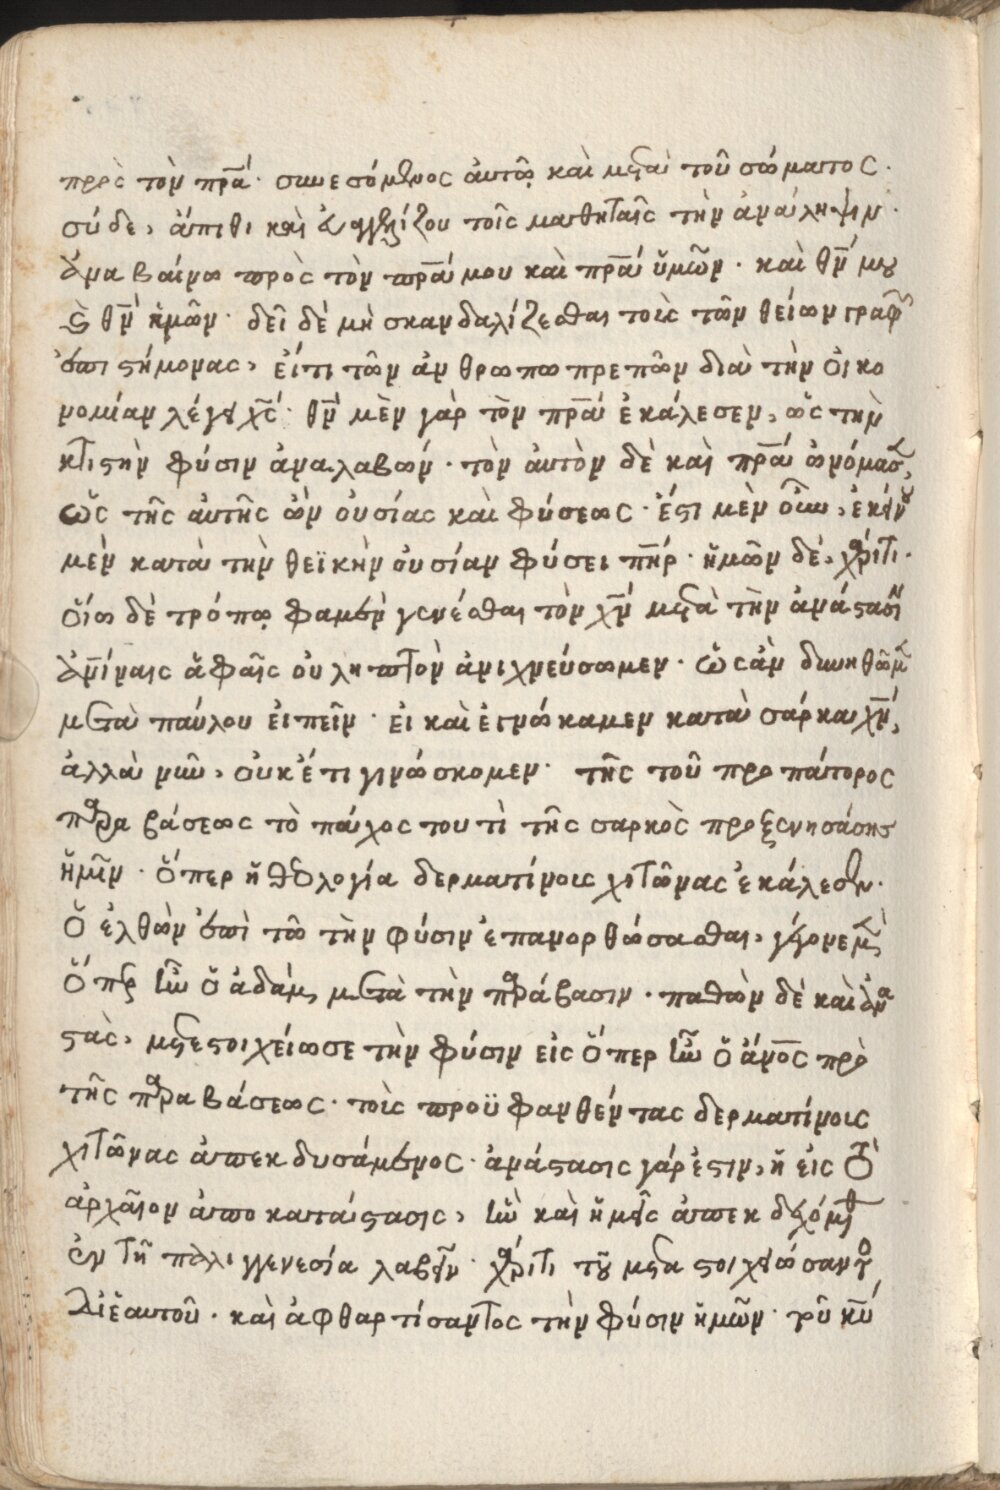 πρὸς τὸν πρ̅ά· συνεσόμενος ἀυτῶ, καὶ μετὰ τοῦ σώματος·
σύ δε, άπιθι καὶ ἐυαγγελίζου τοῖς μαθηταῖς τὴν ἀνάληψιν·
ἀναβαίνω πρὸς τὸν πρ̅ά μου καὶ πρ̅ά ὑμῶν· καὶ θν̅ μου
καὶ θν̅ ἡμῶν· δεῖ δέ μὴ σκανδαλίζεσθαι τοὺς τῶν θείων γραφῶν
ἐπιστήμονας, εἴτι τῶν ἀνθρωποπρεπῶν διὰ τὴν ὀικο
νομίαν λέγει χς̅· θν̅ μὲν γὰρ τὸν πρ̅ά ἐκάλεσεν, ὡς τὴν
κτιστὴν φύσιν ἀναλαβών· τὸν ἀυτὸν δὲ καὶ πρ̅ά ὠνόμασεν,
ὡς τῆς ἀυτῆς ὢν ὀυσίας καὶ φύσεως· ἔστι μὲν οὖν, ἐκείνου
μὲν κατὰ τὴν θεϊκὴν ὀυσίαν φύσει πη̅ρ· ἡμῶν δέ, χάριτι·
οἵω δὲ τρόπω φαμὲν γενέσθαι τὸν χν̅ μετὰ τὴν ἀνάστασιν
ἀνίναις ἀφαῖς οὐ ληπτὸν ἀνιχνεύσωμεν· ὡς ἀν δυνηθῶμεν
μετὰ παύλου εἰπεῖν· εἰ καὶ ἐγνώκαμεν κατὰ σάρκα χν̅,
ἀλλὰ νῦν, ὀυκ' έτι γινώσκομεν· τῆς τοῦ προπάτορος
παραβάσεως τὸ πάχος τουτὶ τῆς σαρκὸς προξενησάσης
ἡμῖν· ὅπερ ἡ θεολογία δερματίνους χιτῶνας ἐκάλεσεν·
ὁ ἐλθὼν ἐπὶ τῶ τὴν φύσιν ἐπανορθώσασθαι, γέγονε μὲν
ὅπερ ἦν ὁ ἀδάμ, μετὰ τὴν παράβασιν· παθὼν δὲ καὶ ἀνα
στὰς, μετεστοιχείωσε τὴν φύσιν εἰς ὅπερ ἦν ὁ ἀν̅ος πρὸ
τῆς παραβάσεως· τοὺς προϋφανθέντας δερματίνους
χιτῶνας ἀπεκδυσάμενος· ἀνάστασις γάρ ἐστιν, ἡ εἰς τὸ
ἀρχαῖον ἀποκατάστασις, ἣν καὶ ἡμεῖς ἀπεκδεχόμεθα
ἐν τῆ παλιγγενεσία λαβεῖν· χάριτι τοῦ μεταστοιχειώσαντος
δι' ἑαυτοῦ· καὶ ἀφθαρτίσαντος τὴν φύσιν ἡμῶν· τοῦ κυ̅